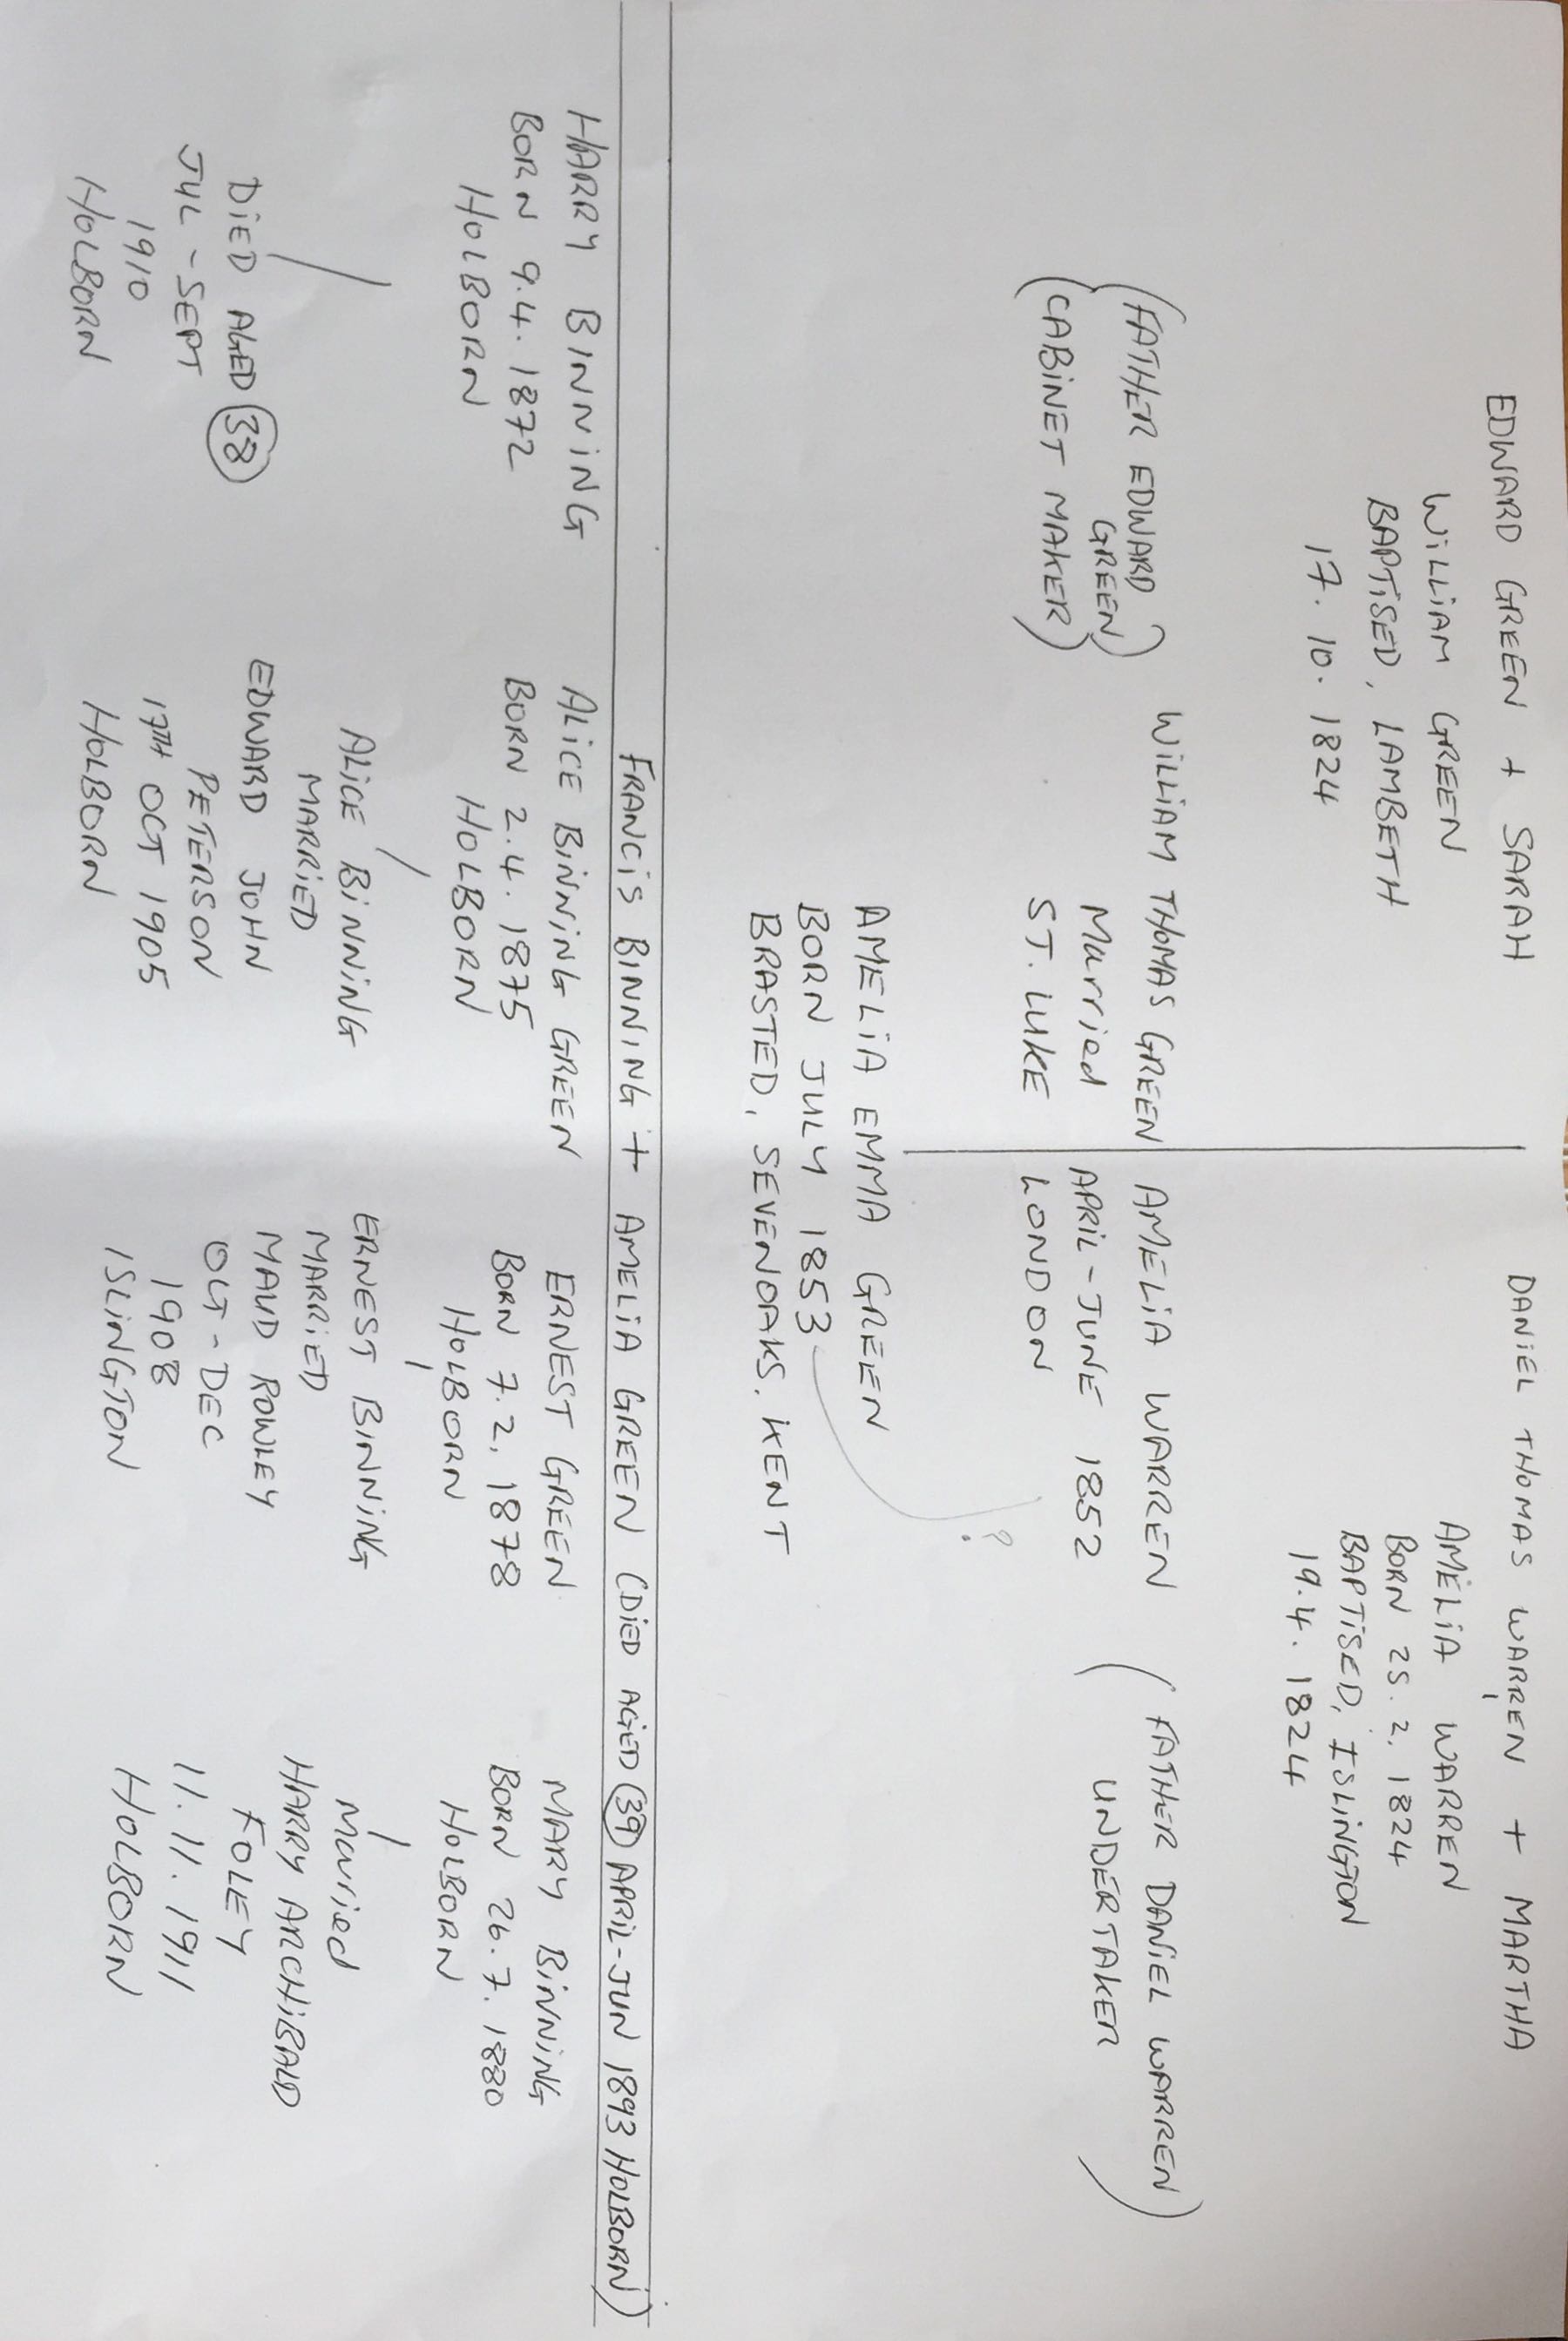 EDWARD GREEN + SARAH
WILLIAM GREEN
BAPTISED, LAMBETH
17.10.1824
DANIEL THOMAS WARREN + MARTHA
AMELIA WARREN
BORN 25.2.1824
BAPTISED, ISLINGTON
19.4.1824
(FATHER EDWARD
GREEN)
(CABINET MAKER)
WILLIAM THOMAS GREEN
Married
ST. LUKE
AMELIA WARREN
APRIL-JUNE 1852
LONDON
(FATHER DANIEL WARREN)
UNDERTAKER
AMELIA EMMA GREEN
BORN JULY 1853
?
BRASTED, SEVENOAKS. KENT
FRANCIS BINNING + AMELIA GREEN (DIED AGED 39 APRIL-JUN 1893 HOLBORN)
HARRY BINNING
BORN 9.4.1872
HOLBORN
DIED AGED 38
JUL - SEPT
1910
HOLBORN
ALICE BINNING GREEN
BORN 2.4.1875
HOLBORN
ALICE BINNING
MARRIED
EDWARD JOHN
PETERSON
17TH OCT 1905
HOLBORN
ERNEST GREEN
BORN 7.2.1878
HOLBORN
ERNEST BINNING
MARRIED
MAUD ROWLEY
OCT-DEC
1908
ISLINGTON
MARY BINNING
BORN 26.7.1880
HOLBORN
Married
HARRY ARCHIBALD
FOLEY
11.11.1911
HOLBORN